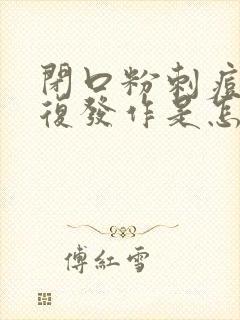 閉口粉刺痘
復發作是怎
傅紅雪